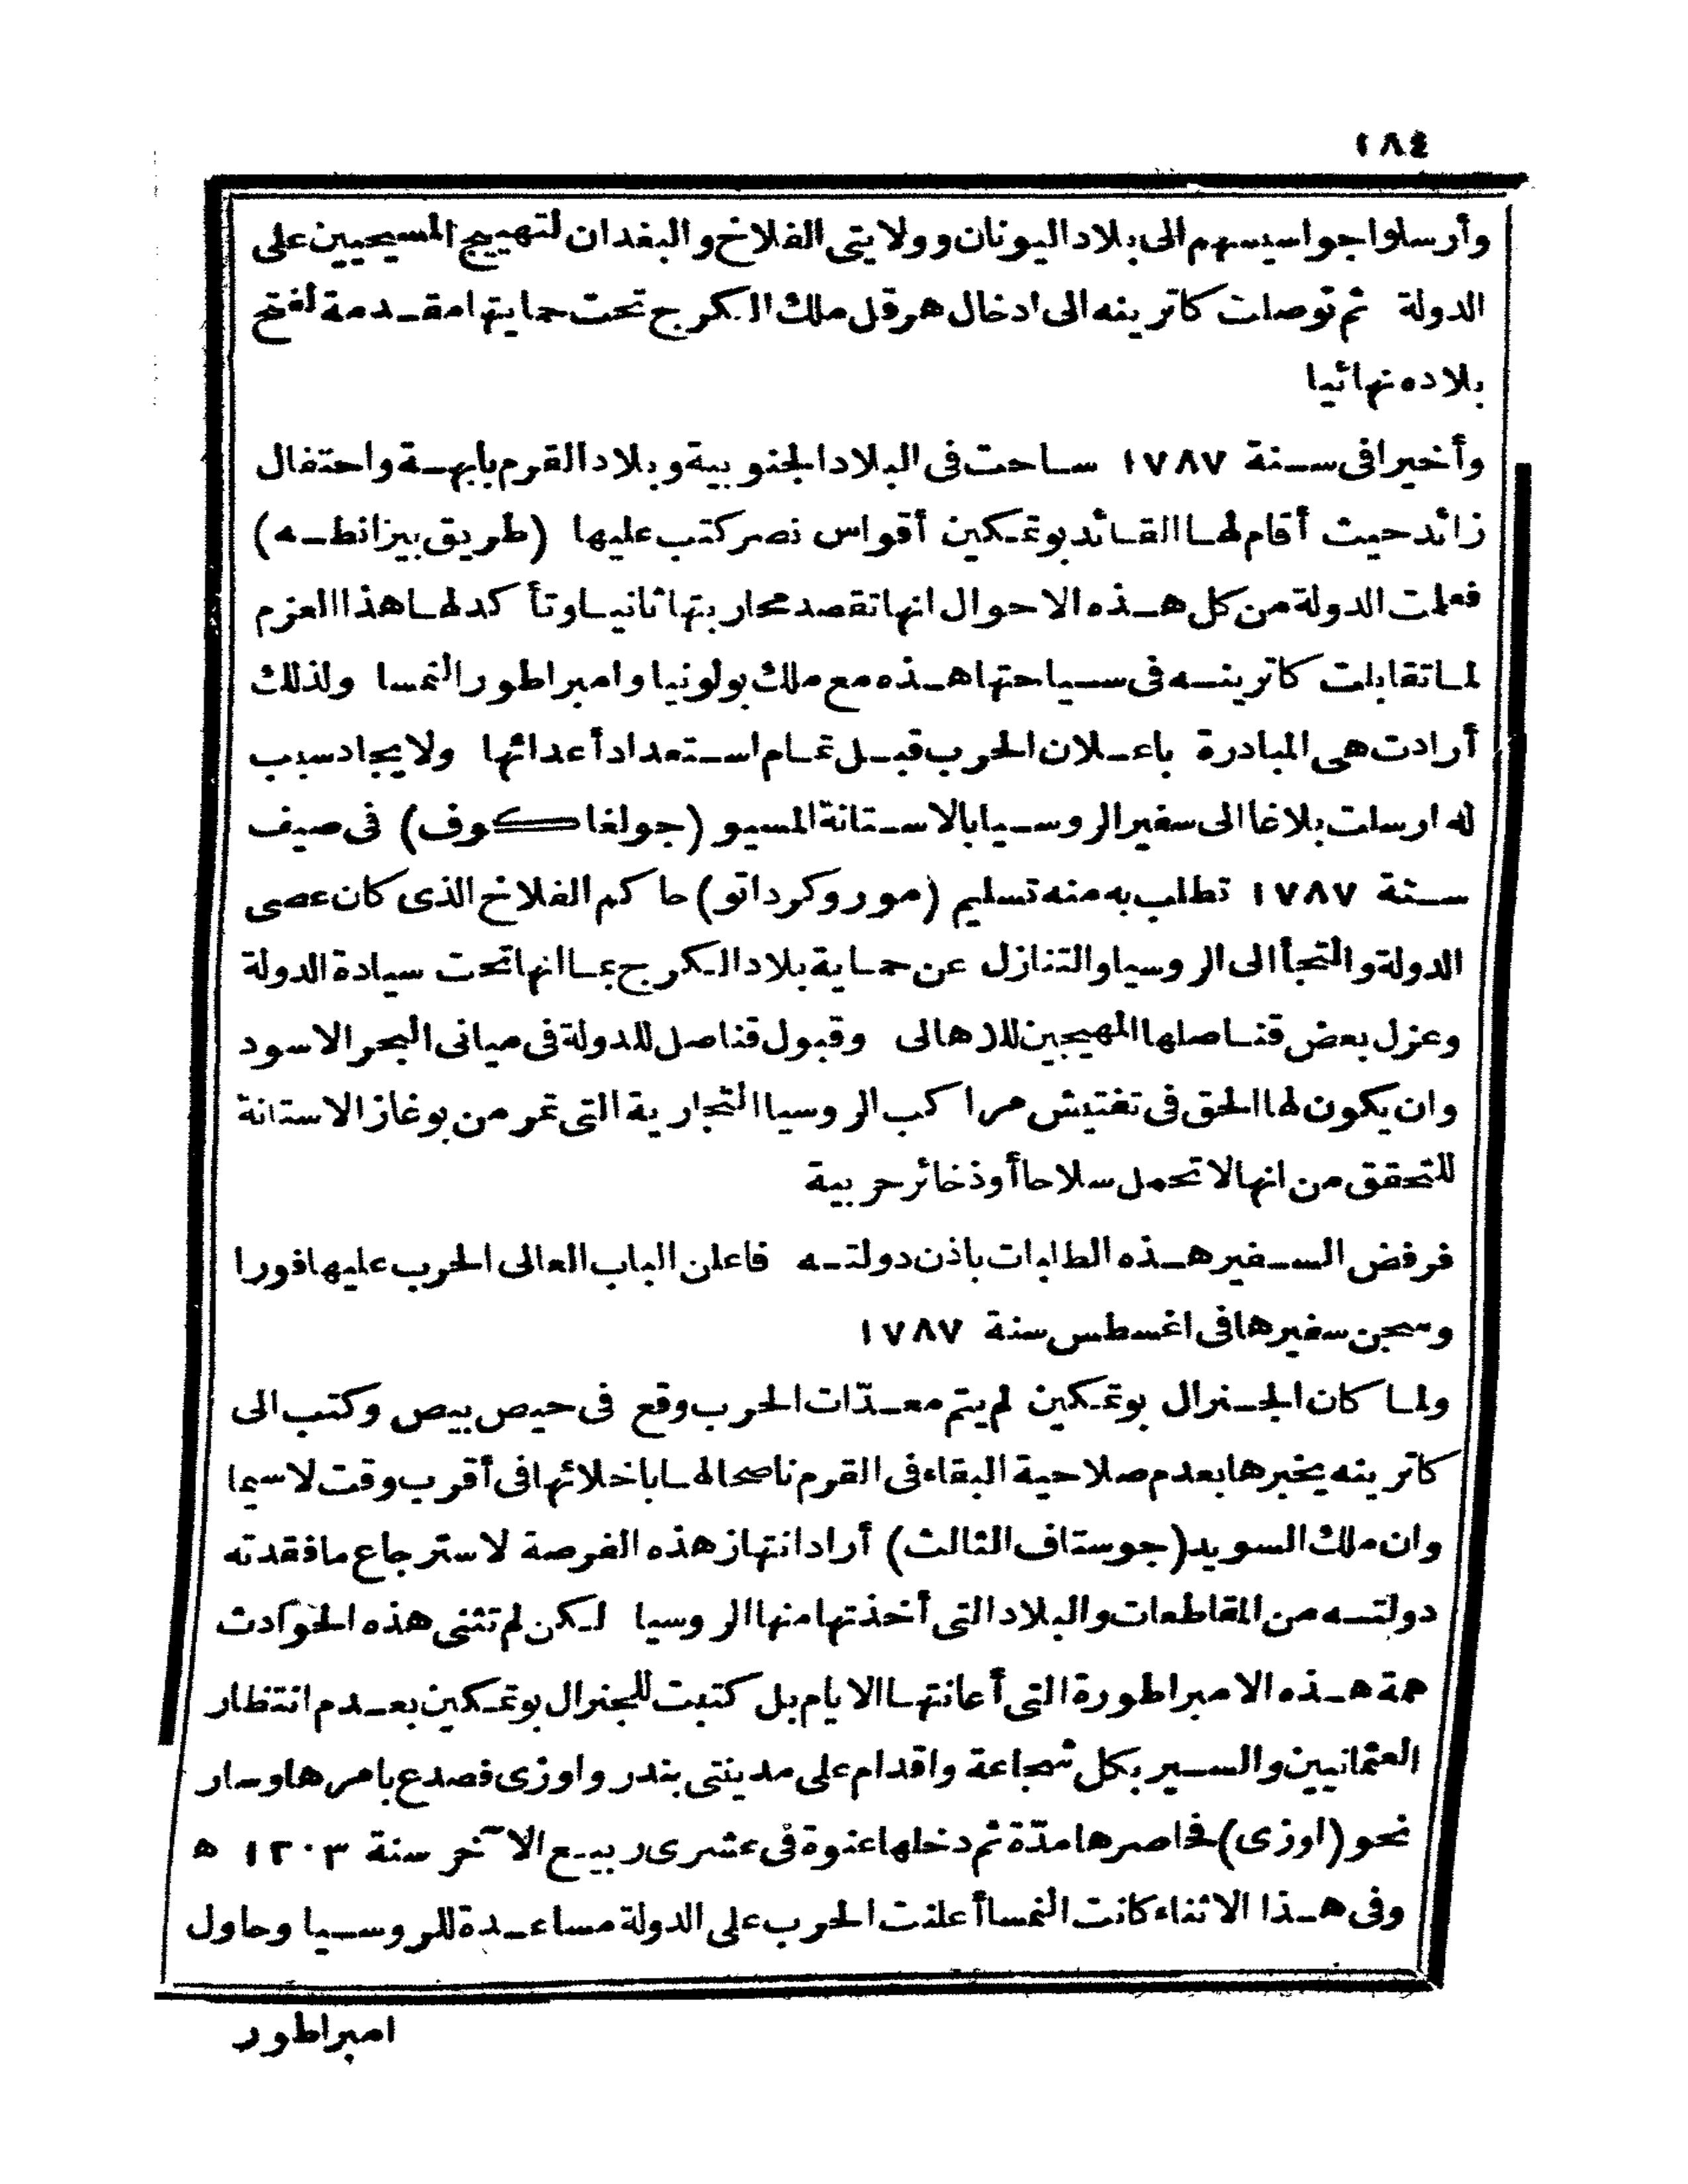 ١٨٤
وأرسلوا جواسيسهم الى بلاد اليونان وولايتى الفلاخ والبغدان لتهييج المسيحيين على
الدولة ثم توصلت كاترينه الى ادخال هرقل ملك الكرج تحت حمايتها مقدمة لفتح
بلاده نهائيا
وأخيرا فى سنة ١٧٨٧ ساحت فى البلاد الجنوبية وبلاد القرم بابهة واحتفال
زائد حيث أقام لها القائد بوتمكين أقواس نصر كتب عليها (طريق بيزانطه)
فعلمت الدولة من كل هذه الاحوال انها تقصد محاربتها ثانيا وتأكد لها هذا العزم
لما تقابلت كاترينه فى سياحتها هذه مع ملك بولونيا وامبراطور النمسا ولذلك
أرادت هى المبادرة باعلان الحرب قبل تمام استعداد أعدائها ولايجاد سبب
له ارسلت بلاغا الى سفير الروسيا بالاستانة المسيو (جولغاكوف) فى صيف
سنة ١٧٨٧ تطلب به منه تسليم (موروكرداتو) حاكم الفلاخ الذى كان عصى
الدولة والتجأ الى الروسيا والتنازل عن حماية بلاد الكرج بما انها تحت سيادة الدولة
وعزل بعض قناصلها المهيجين للاهالى وقبول قناصل للدولة فى ميانى البحر الاسود
وان يكون لها الحق فى تفتيش مراكب الروسيا التجارية التى تمر من بوغاز الاستانة
للتحقق من انها لا تحمل سلاحا أو ذخائر حربية
فرفض السفير هذه الطلبات باذن دولته فاعلن الباب العالى الحرب عليها فورا
وسجن سفيرها فى اغسطس سنة ١٧٨٧
ولما كان الجنرال بوتمكين لم يتم معدّات الحرب وقع فى حيص بيص وكتب الى
كاترينه يخبرها بعدم صلاحية البقاء فى القرم ناصحا لها باخلائها فى أقرب وقت لاسيما
وان ملك السويد (جوستاف الثالث) أراد انتهاز هذه الفرصة لاسترجاع ما فقدته
دولته من المقاطعات والبلاد التى أخذتها منها الروسيا لكن لم تثنى هذه الحوادث
همة هذه الامبراطورة التى أعانتها الايام بل كتبت للجنرال بوتمكين بعدم انتظار
العثمانيين والسير بكل شجاعة واقدام على مدينتى بندر واوزى فصدع بامرها وسار
نحو (اوزى) فحاصرها مدّة ثم دخلها عنوة فى عشرى ربيع الآخر سنة ١٢٠٣ ه
وفى هذا الاثناء كانت النمسا أعلنت الحرب على الدولة مساعدة للروسيا وحاول
امبراطور